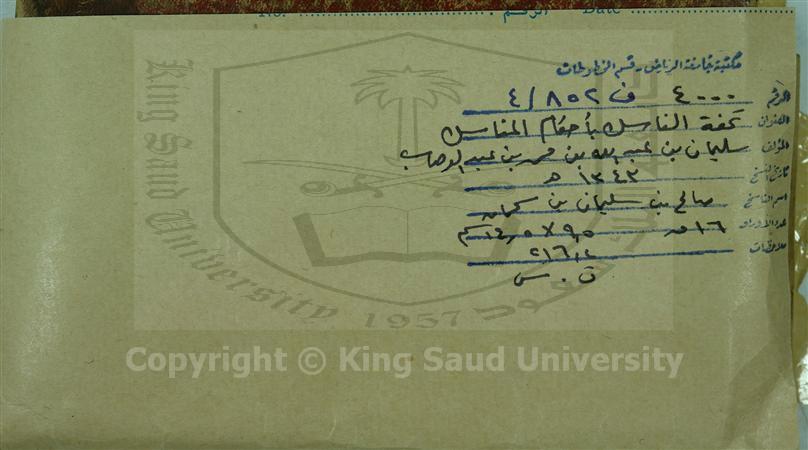 No. الرقم Date
مكتبة جامعة الرياض - قسم المخطوطات
الرقم ٤٠٠٠ ف ٨٥٢ / ٤
العنوان تحفة الناسك بأحكام المناسك
المؤلف سليمان بن عبد الله بن محمد بن عبد الوهاب
تاريخ النسخ ١٣٤٣ هـ
اسم الناسخ صالح بن سليمان بن سحمان
عدد الأوراق ١٦ ق ١٤٫٥ × ٩٫٥ سم
ملاحظات ٢١٦٫٤
ق . س
King Saud University
1957
Copyright © King Saud University